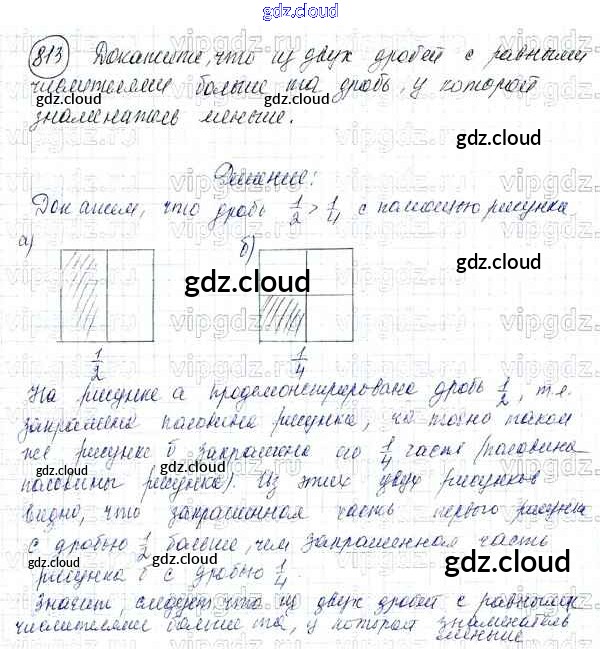 gdz.cloud
813 Докажите, что из двух дробей с равными
числителями больше та дробь, у которой
знаменатель меньше.
gdz.cloud
gdz.cloud
Решение:
Докажем, что дробь 1/2 > 1/4 с помощью рисунка.
а) б)
gdz.cloud
gdz.cloud
1/2 1/4
На рисунке а продемонстрирована дробь 1/2, т.е.
закрашена половина рисунка, на точно таком
же рисунке б закрашена 1/4 часть (половина
половины рисунка). Из этих двух рисунков
gdz.cloud
gdz.cloud
видно, что закрашенная часть первого рисунка
с дробью 1/2 больше, чем закрашенная часть
рисунка б с дробью 1/4
gdz.cloud
gdz.cloud
Значит, следует что из двух дробей с равными
числителями больше та, у которой знаменатель
меньше
gdz.cloud